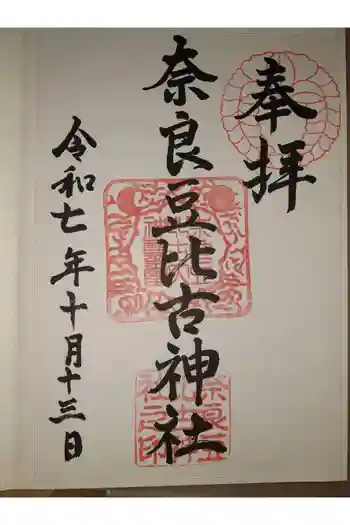 奉拝
奈良豆比古神社
令和七年十月十三日